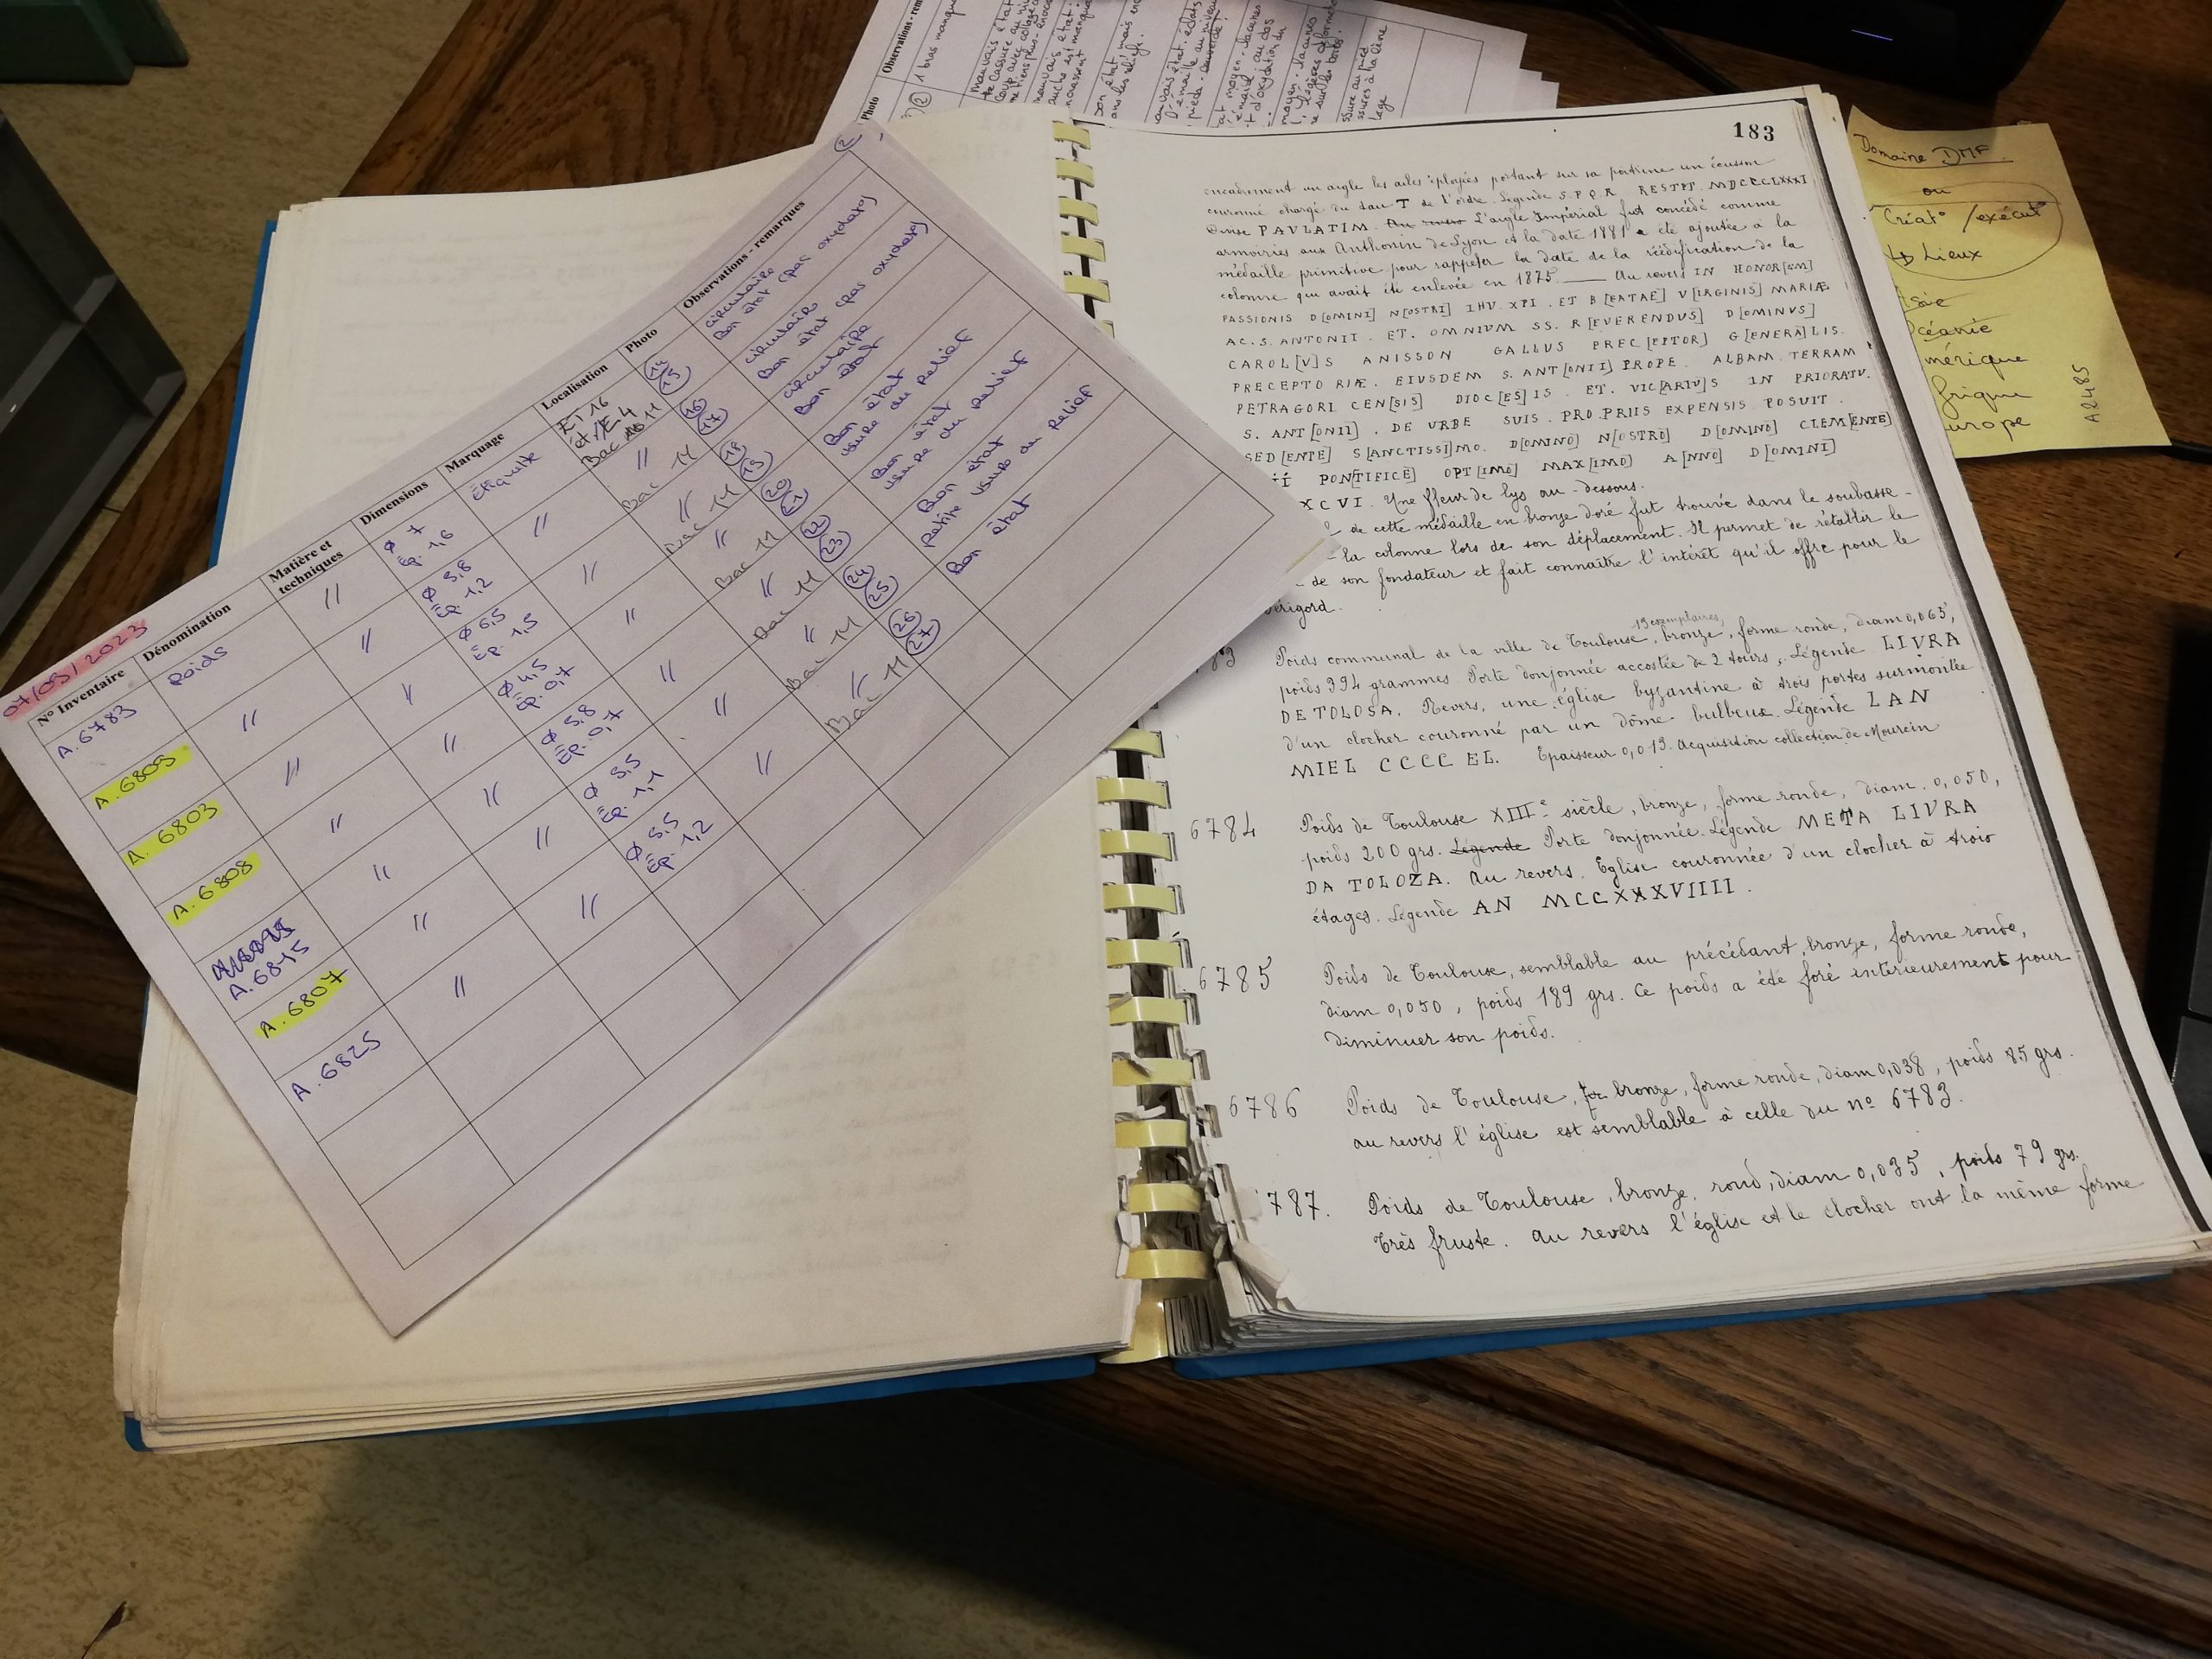 183
encadrement un aigle les ailes éployées portant sur sa poitrine un écusson
couronné chargé du tau T de l'ordre. Légende S.P.Q.R. RESTIT. MDCCCLXXXI
Devise PAVLATIM. Au revers L'aigle Impérial fut concédé comme
armoiries aux Anthonin de Lyon et la date 1881 a été ajoutée à la
médaille primitive pour rappeler la date de la réédification de la
colonne qui avait été enlevée en 1875. — Au revers IN HONOR[EM]
PASSIONIS D[OMINI] N[OSTRI] IHV. XPI. ET B[EATAE] V[IRGINIS] MARIÆ
AC. S. ANTONII. ET. OMNIVM SS. R[EVERENDUS] D[OMINVS]
CAROL[V]S ANISSON GALLUS PREC[EPTOR] G[ENERALIS.
PRECEPTO RIÆ. EIUSDEM S. ANT[ONII] PROPE. ALBAM. TERRAM
PETRAGORI CEN[SIS] DIOC[ES]IS. ET. VIC[ARIV]S IN PRIORATV.
S. ANT[ONII]. DE URBE SUIS. PRO.PRIIS EXPENSIS POSUIT.
SED[ENTE] S[ANCTISSI]MO. D[OMINO] N[OSTRO] D[OMINO] CLEM[ENTE]
PONTIFICE] OPT[IMO] MAX[IMO] A[NNO] D[OMINI]
XCVI. Une fleur de lys au-dessous.
de cette médaille en bronze doré fut trouvée dans le soubasse-
la colonne lors de son déplacement. Il permet de rétablir le
de son fondateur et fait connaître l'intérêt qu'il offre pour le
érigord.
13 exemplaires,
83 Poids communal de la ville de Toulouse, bronze, forme ronde, diam 0,065,
poids 394 grammes. Porte donjonnée accostée de 2 tours, Légende LIVRA
DE TOLOSA. Revers, une église byzantine à trois portes surmontée
d'un clocher couronné par un dôme bulbeux. Légende LAN
MIEL CCCC EL. Epaisseur 0,013. Acquisition collection de Mourcin
6784 Poids de Toulouse XIIIe siècle, bronze, forme ronde, diam. 0,050,
poids 200 grs. Légende Porte donjonnée. Légende META LIVRA
DA TOLOZA. Au revers, Eglise couronnée d'un clocher à trois
étages. Légende AN MCCXXXVIIII.
6785 Poids de Toulouse, semblable au précédant, bronze, forme ronde,
diam 0,050, poids 189 grs. Ce poids a été foré intérieurement pour
diminuer son poids.
6786 Poids de Toulouse, bronze, forme ronde, diam 0,038, poids 85 grs.
au revers l'église est semblable à celle du nº 6783.
787. Poids de Toulouse, bronze, rond, diam 0,035, poids 79 grs.
Très fruste. Au revers l'église et le clocher ont la même forme
07/03/2023
2
N° Inventaire Dénomination Matière et techniques Dimensions Marquage Localisation Photo Observations - remarques
A. 6783 Poids // Ø 7 Ép. 1,6 Étiquette ET 16 et/E4 Bac 11 14 15 circulaire Bon état (pas oxydato)
A. 6809 // // Ø 5,8 Ép. 1,2 // // Bac 11 16 17 circulaire Bon état (pas oxydato)
A. 6803 // // Ø 6,5 Ép. 1,5 // // Bac 11 18 19 circulaire Bon état
A. 6808 // // Ø 4,5 Ép. 0,7 // // Bac 11 20 21 Bon état usure du relief
A. 6845 // // Ø 5,8 Ép. 0,7 // // Bac 11 22 23 Bon état usure du relief
A. 6807 // // Ø 5,5 Ép. 1,1 // // Bac 11 24 25 Bon état petite usure du relief
A. 6825 // // Ø 5,5 Ép. 1,2 // // Bac 11 26 27 Bon état
Photo Observations - rem
2 1 bras manqu
Domaine DMF
ou
Créat° / exécut°
↳ Lieux
Asie
Océanie
mérique
frique
urope
A2485